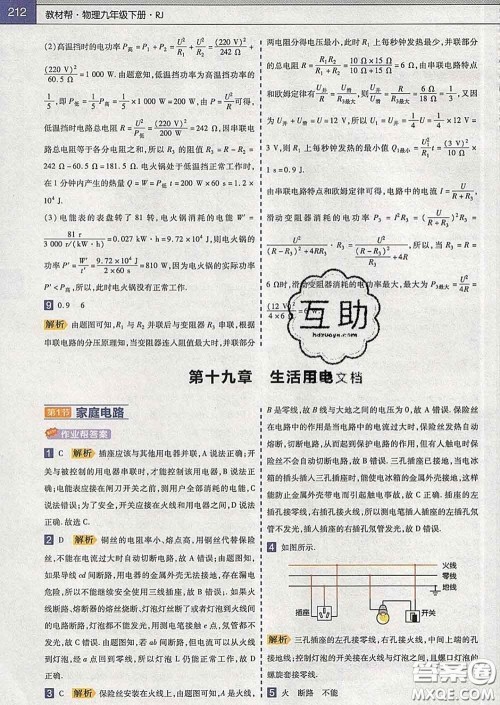 212 教材帮·物理九年级下册·RJ
(2)高温挡时的电功率 P高=P1+P2=U²/R1+U²/R2=
(220 V)²/60.5 Ω=1 000 W. 由题意知,低温挡功率为高温挡功率的
1/5,即 P低=1/5P高=1/5×1 000 W=200 W. 由 P=U²/R可得,
低温挡时电路总电阻 R=U²/P低=(220 V)²/200 W=242 Ω,因串联电
路总电阻等于各分电阻之和,所以 R2 的阻值 R2=R-R1=
242 Ω-60.5 Ω=181.5 Ω. 电火锅处于低温挡正常工作时,
在 1 分钟内产生的热量 Q=W=P低t=200 W×60 s=1.2×
10⁴ J.
(3)电能表的表盘转了 81 转,电火锅消耗的电能 W'=
81/3 000 r/(kW·h)=0.027 kW·h=9.72×10⁴ J,电火锅的实际功率
P'=W'/t'=9.72×10⁴ J/2×60 s=810 W,因为 P'<P高,所以电火锅
没有正常工作.
9 0.9 6
解析 由题图可知,R1 与 R2 并联后与变阻器 R3 串联,根据
串联电路的分压原理知,当变阻器连入阻值最大时,并联部分
两电阻分得电压最小,此时 R1 上每秒钟发热最少. 并联部分
的总电阻 R并=R1R2/(R1+R2)=10 Ω×15 Ω/(10 Ω+15 Ω)=6 Ω,由串联电路特点
和欧姆定律有U并/U滑=R并/R3最大,则U并/U滑=R并/R3最大=6 Ω/18 Ω=1/3,又
因 U并+U滑=U=12 V,所以 U并=1/4U=1/4×12 V=
3 V,则 R1 每秒钟发热的最小值 Q1最小=U并²/R1 t=(3 V)²/10 Ω
×1 s=0.9 J.
由串联电路特点和欧姆定律可得,电路中的电流 I=U/(R+R3),
滑动变阻器消耗的功率 P3=I²R3=(U/(R+R3))²R3=
U²/((R-R3)²+4RR3)·R3=U²/((R-R3)²/R3+4R),所以,当 R3=R=
6 Ω时,滑动变阻器消耗的电功率最大,最大为 P3最大=U²/4R=
(12 V)²/(4×6 Ω)=6 W.
互助
hdzuoye.com
文档
第十九章 生活用电
第1节 家庭电路
作业帮答案
1 C 解析 插座应该与其他用电器并联,A 说法正确;开
关与被控制的用电器串联时,才能控制该用电器,B 说法正
确;电能表应接在闸刀开关之前,测用户全部消耗的电能,C
说法错误;为了安全,开关应接火线和用电器之间,D 说法
正确. 故选 C.
2 D 解析 铜丝的电阻率小、熔点高,用铜丝代替保险
丝,不能在电流过大时自动切断电路,故 A 错误;由题图知,
如果导线 cd 间断路,用电器的金属外壳无法接地,存在漏电
危险,所以不能继续安全使用三线插座,故 B 错误;如果火
线断路,熔断器的保险丝、灯泡灯丝断了或者灯泡到火线的
开关、导线断路,灯泡都不发光,而不只是灯丝断,零线断也
不发光,故 C 错误;由图知,若 ab 断路,但电流可以从火线
到灯泡,经 a 点回到零线,所以灯 L 仍能正常工作,故 D
正确.
3 C 解析 保险丝安装在火线上,由题图可知,A 是火线,
B 是零线,故 B 线与大地之间的电压为 0,故 A 错误. 保险丝
在电路中的作用是当电流过大时,保险丝会发热而自动
熔断,切断电路,从而起到保护电路的作用,但有人触电时
保险丝不一定会熔断,故 B 错误. 三孔插座接地,当电冰
箱的三脚插头插入时,能使电冰箱的金属外壳接地,这样
能防止金属外壳带电而引起触电事故,故 C 正确. 三孔插
座左插孔接零线,右插孔接火线,所以测电笔插入左插孔氖
管不发光,插入图示的右插孔氖管发光,故 D 错误.
4 如图所示.
火线
零线
地线
插座 开关
解析 三孔插座的左孔接零线,右孔接火线,中间上端的孔
接地线;控制灯泡的开关与火线和灯泡相连,零线与灯泡的
螺旋套接.
5 火 断路 不能
答案圈
MXQE.COM